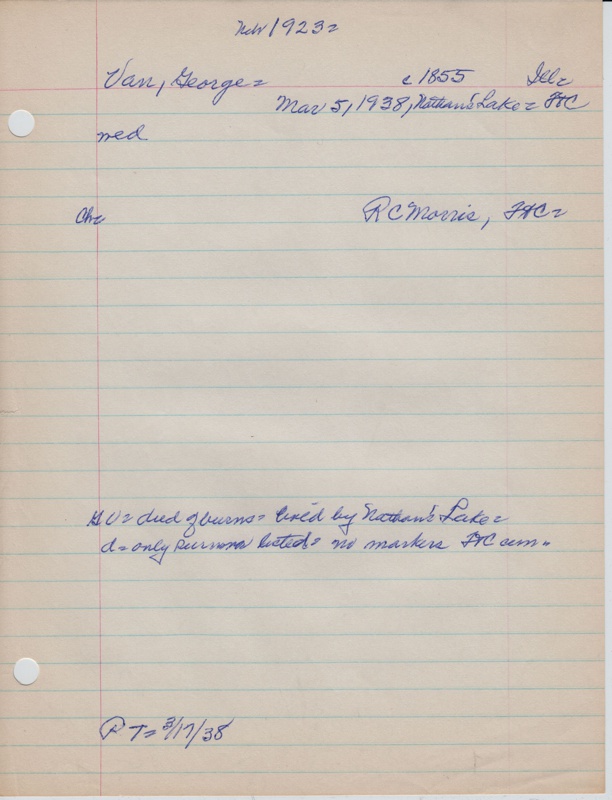 Neb 1923=
Van, George= c 1855 Ill=
Mar 5, 1938, Nathan's Lake= FtC
wed
Ch= R C Morris, FtC=
GV= died of burns= lived by Nathan's Lake=
d= only survivor listed= no markers FtC cem=
PT= 3/17/38